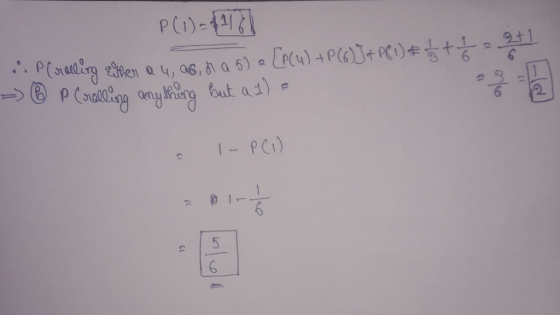 P(1) = 1/6
∴ P(rolling either a 4, a 6, or a 5) = [P(4) + P(6)] + P(1) = 1/3 + 1/6 = 2+1/6
= 3/6 = 1/2
⇒ (b) P(rolling anything but a 1) =
= 1 - P(1)
= 1 - 1/6
= 5/6